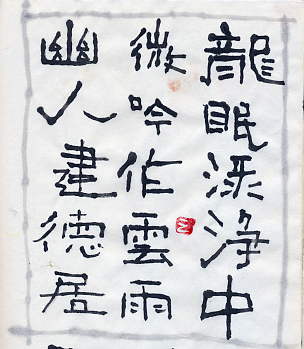 龍眠淥淨中
微吟作雲雨
幽人建德居